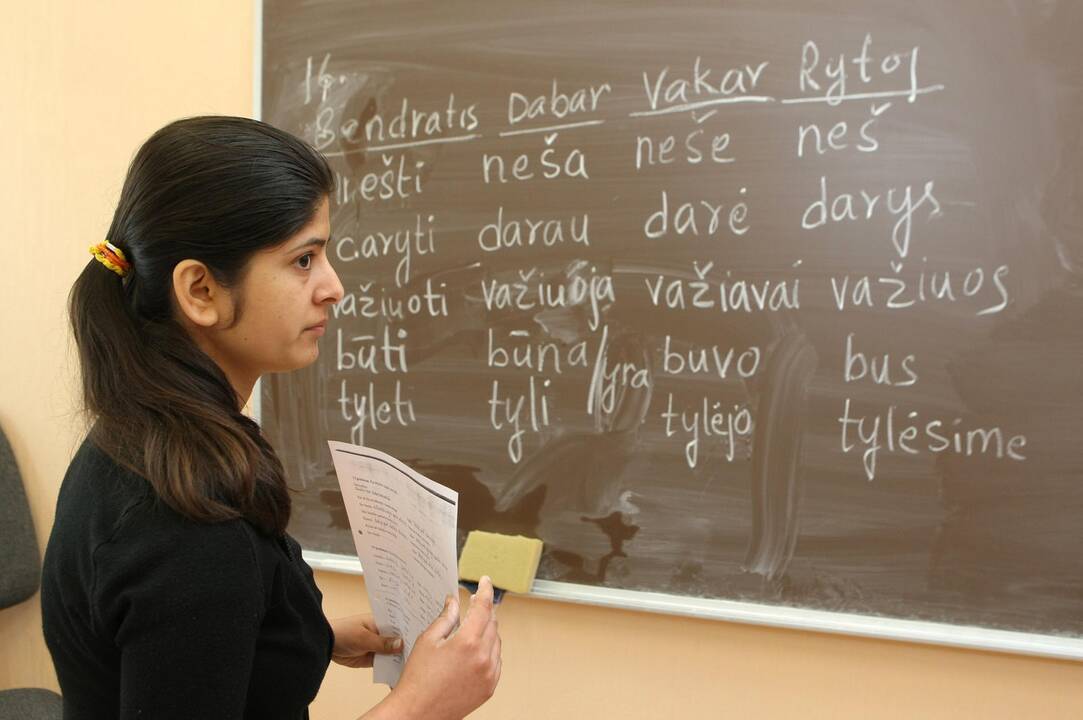 14.
Bendratis Dabar Vakar Rytoj
nešti neša neše neš
caryti darau darė darys
važiuoti važiuoja važiavai važiuos
būti būna/yra buvo bus
tylėti tyli tylėjo tylėsime